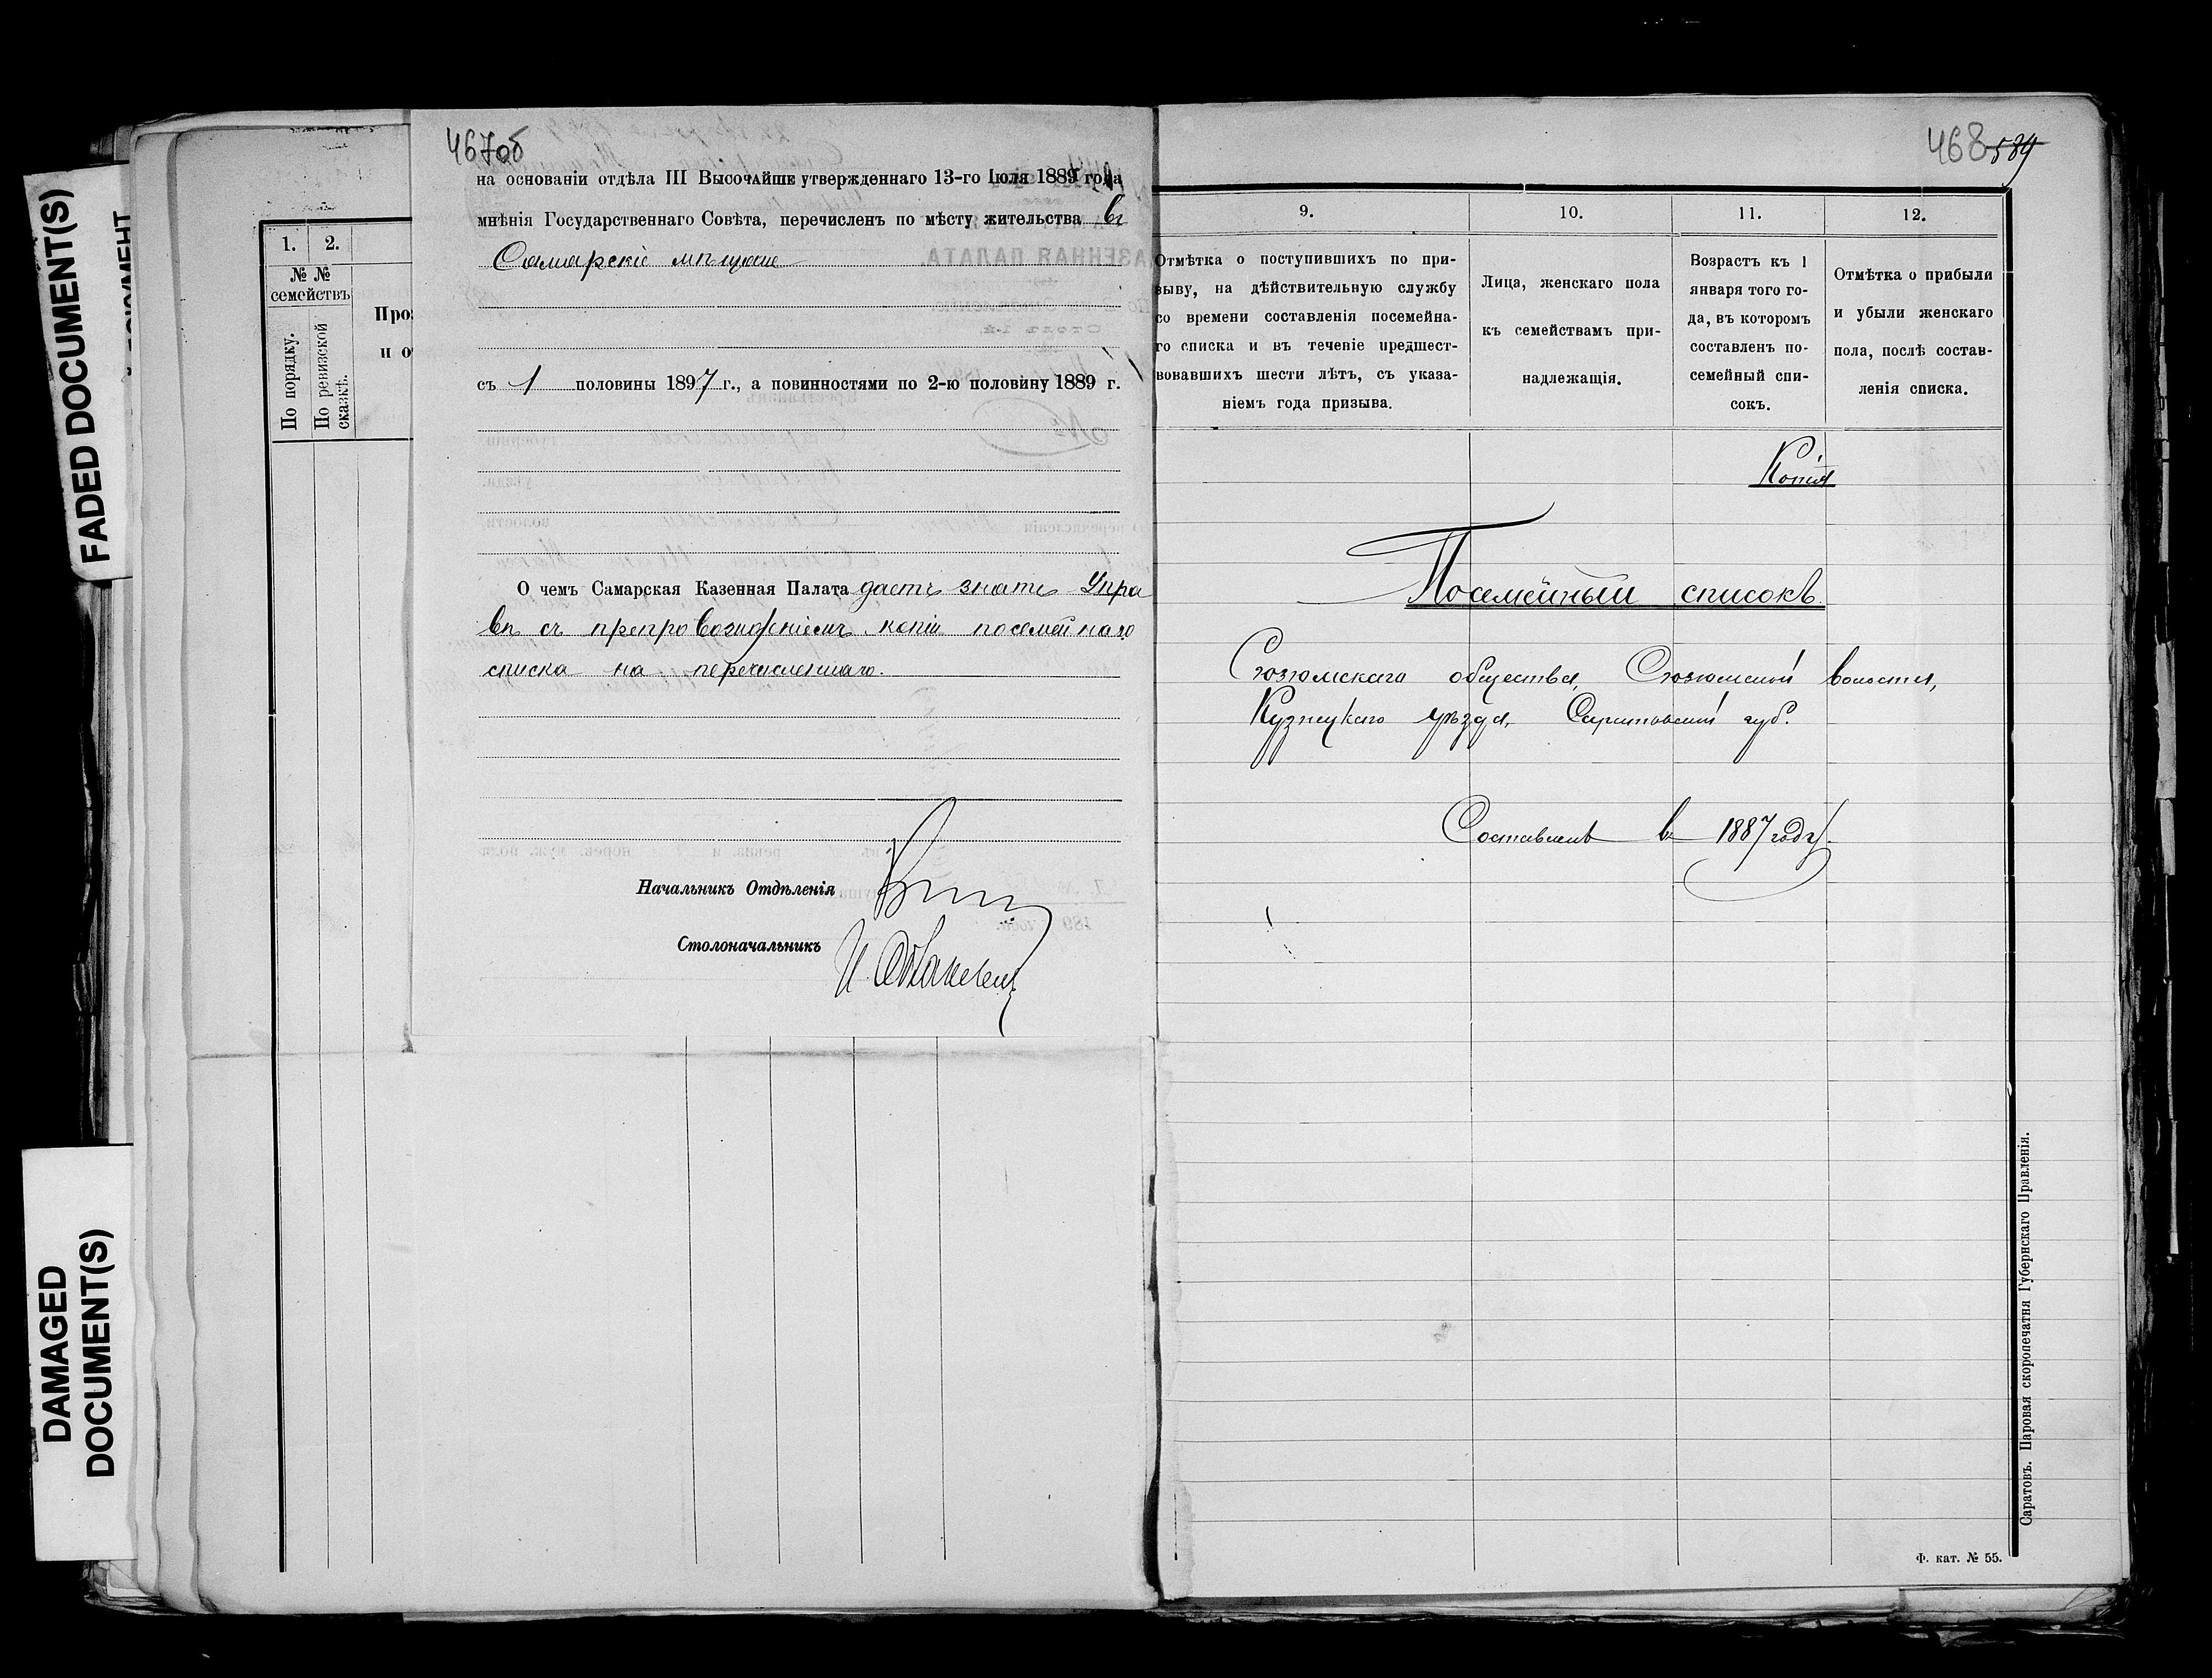 FADED DOCUMENT(S)
DAMAGED
DOCUMENT(S)
1.
2.
№ №
семействъ
По порядку.
По ревизской
сказкѣ.
467об
на основаніи отдѣла III Высочайше утвержденнаго 13-го Іюля 1889 года
мнѣнія Государственнаго Совѣта, перечисленъ по мѣсту жительства въ
Самарскіе мѣщане
съ 1 половины 1897 г., а повинностями по 2-ю половину 1889 г.
О чемъ Самарская Казенная Палата даетъ знать Упра
вѣ съ препровожденіемъ копіи посемейнаго
списка на перечисленнаго.
Начальникъ Отдѣленія
Столоначальникъ
468 589
9.
10.
11.
12.
Отмѣтка о поступившихъ по при-
зыву, на дѣйствительную службу
со времени составленія посемейна-
го списка и въ теченіе предшест-
вовавшихъ шести лѣтъ, съ указа-
ніемъ года призыва.
Лица, женскаго пола
къ семействамъ при-
надлежащія.
Возрастъ къ 1
января того го-
да, въ которомъ
составленъ по-
семейный спи-
сокъ.
Отмѣтка о прибыли
и убыли женскаго
пола, послѣ состав-
ленія списка.
Копія
Посемейный списокъ
Сюзюмскаго общества, Сюзюмской волости,
Кузнецкаго уѣзда, Саратовской губ.
Составленъ въ 1887 году.
Саратовъ. Паровая скоропечатня Губернскаго Правленія.
Ф. кат. № 55.